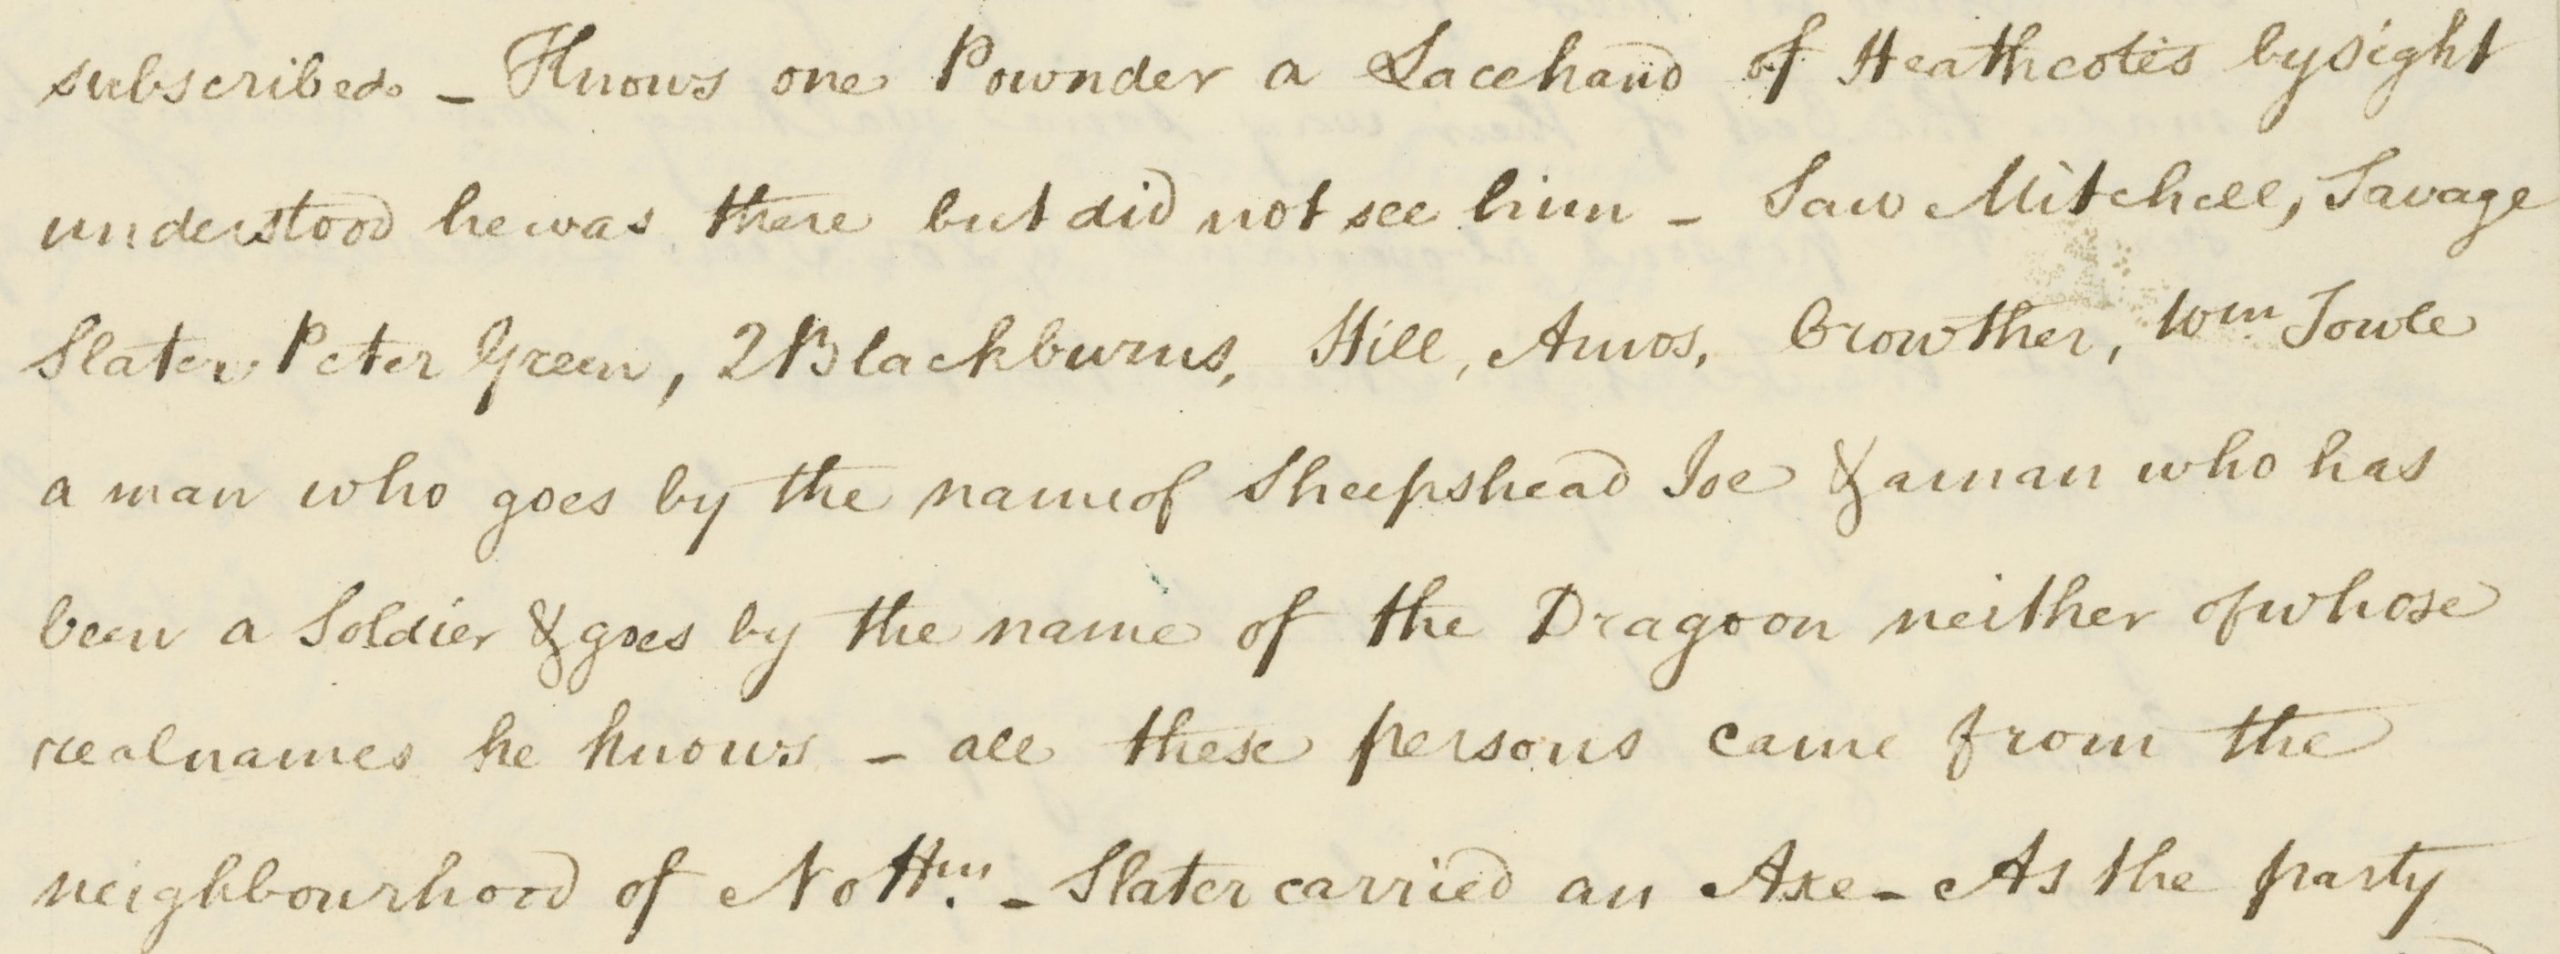 subscribed. – Knows one Pownder a Lacehand of Heathcotes by sight
understood he was there but did not see him – Saw Mitchell, Savage
Slater, Peter Green, 2 Blackburns, Hill, Amos, Crowther, Wm. Towle
a man who goes by the name of Sheepshead Joe & a man who has
been a Soldier & goes by the name of the Dragoon neither of whose
real names he knows – all these persons came from the
neighbourhood of Nottm. – Slater carried an Axe – As the party